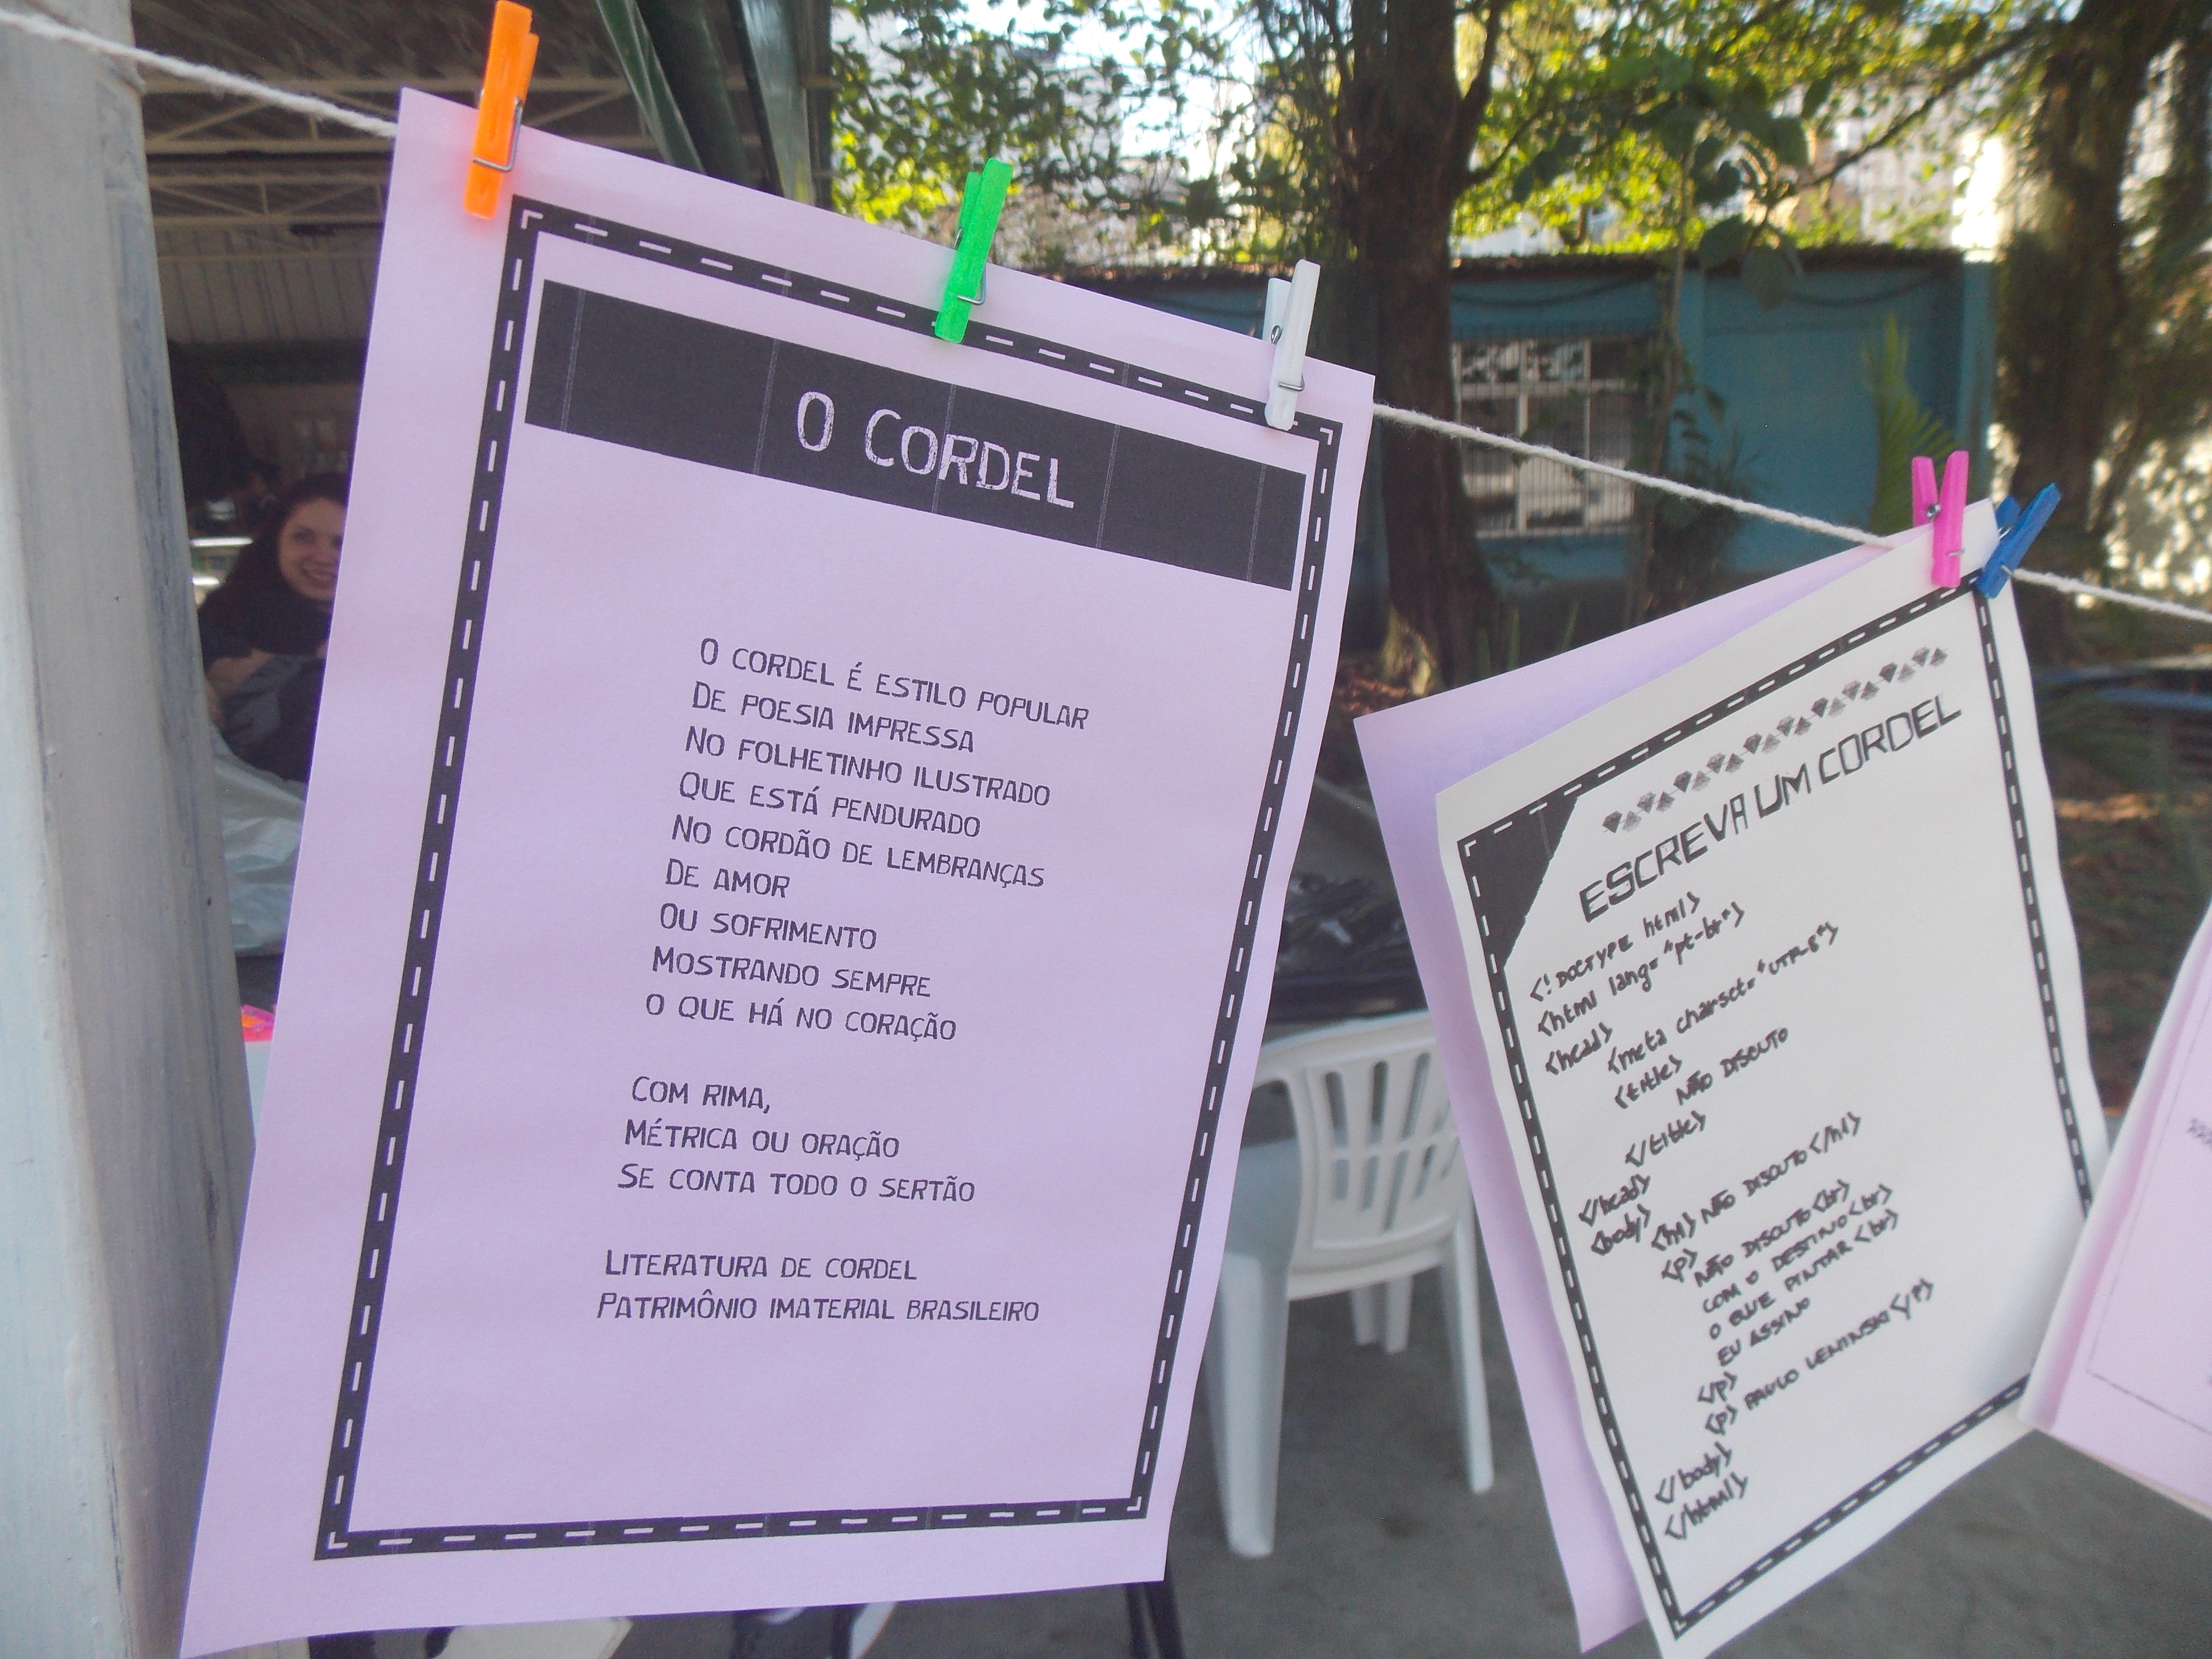 O CORDEL
O CORDEL É ESTILO POPULAR
DE POESIA IMPRESSA
NO FOLHETINHO ILUSTRADO
QUE ESTÁ PENDURADO
NO CORDÃO DE LEMBRANÇAS
DE AMOR
OU SOFRIMENTO
MOSTRANDO SEMPRE
O QUE HÁ NO CORAÇÃO
COM RIMA,
MÉTRICA OU ORAÇÃO
SE CONTA TODO O SERTÃO
LITERATURA DE CORDEL
PATRIMÔNIO IMATERIAL BRASILEIRO
ESCREVA UM CORDEL
<!DOCTYPE html>
<html lang="pt-br">
<head>
<meta charset="UTF-8">
<title>
NÃO DISCUTO
</title>
</head>
<body>
<h1> NÃO DISCUTO </h1>
<p>
NÃO DISCUTO <br>
COM O DESTINO <br>
O QUE PINTAR <br>
EU ASSINO
</p>
<p> PAULO LEMINSKI </p>
</body>
</html>